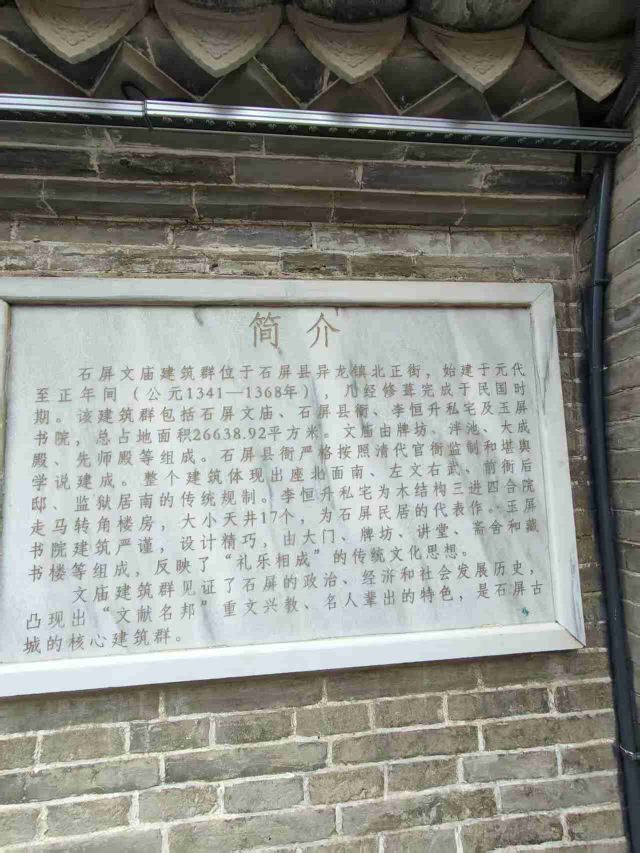 简介
石屏文庙建筑群位于石屏县异龙镇北正街，始建于元代
至正年间（公元1341—1368年），几经修葺完成于民国时
期。该建筑群包括石屏文庙、石屏县衙、李恒升私宅及玉屏
书院，总占地面积26638.92平方米。文庙由牌坊、泮池、大成
殿、先师殿等组成。石屏县衙严格按照清代官衙监制和堪舆
学说建成。整个建筑体现出座北面南、左文右武、前衙后
邸、监狱居南的传统规制。李恒升私宅为木结构三进四合院
走马转角楼房，大小天井17个，为石屏民居的代表作。玉屏
书院建筑严谨，设计精巧，由大门、牌坊、讲堂、斋舍和藏
书楼等组成，反映了“礼乐相成”的传统文化思想。
文庙建筑群见证了石屏的政治、经济和社会发展历史，
凸现出“文献名邦”重文兴教、名人辈出的特色，是石屏古
城的核心建筑群。